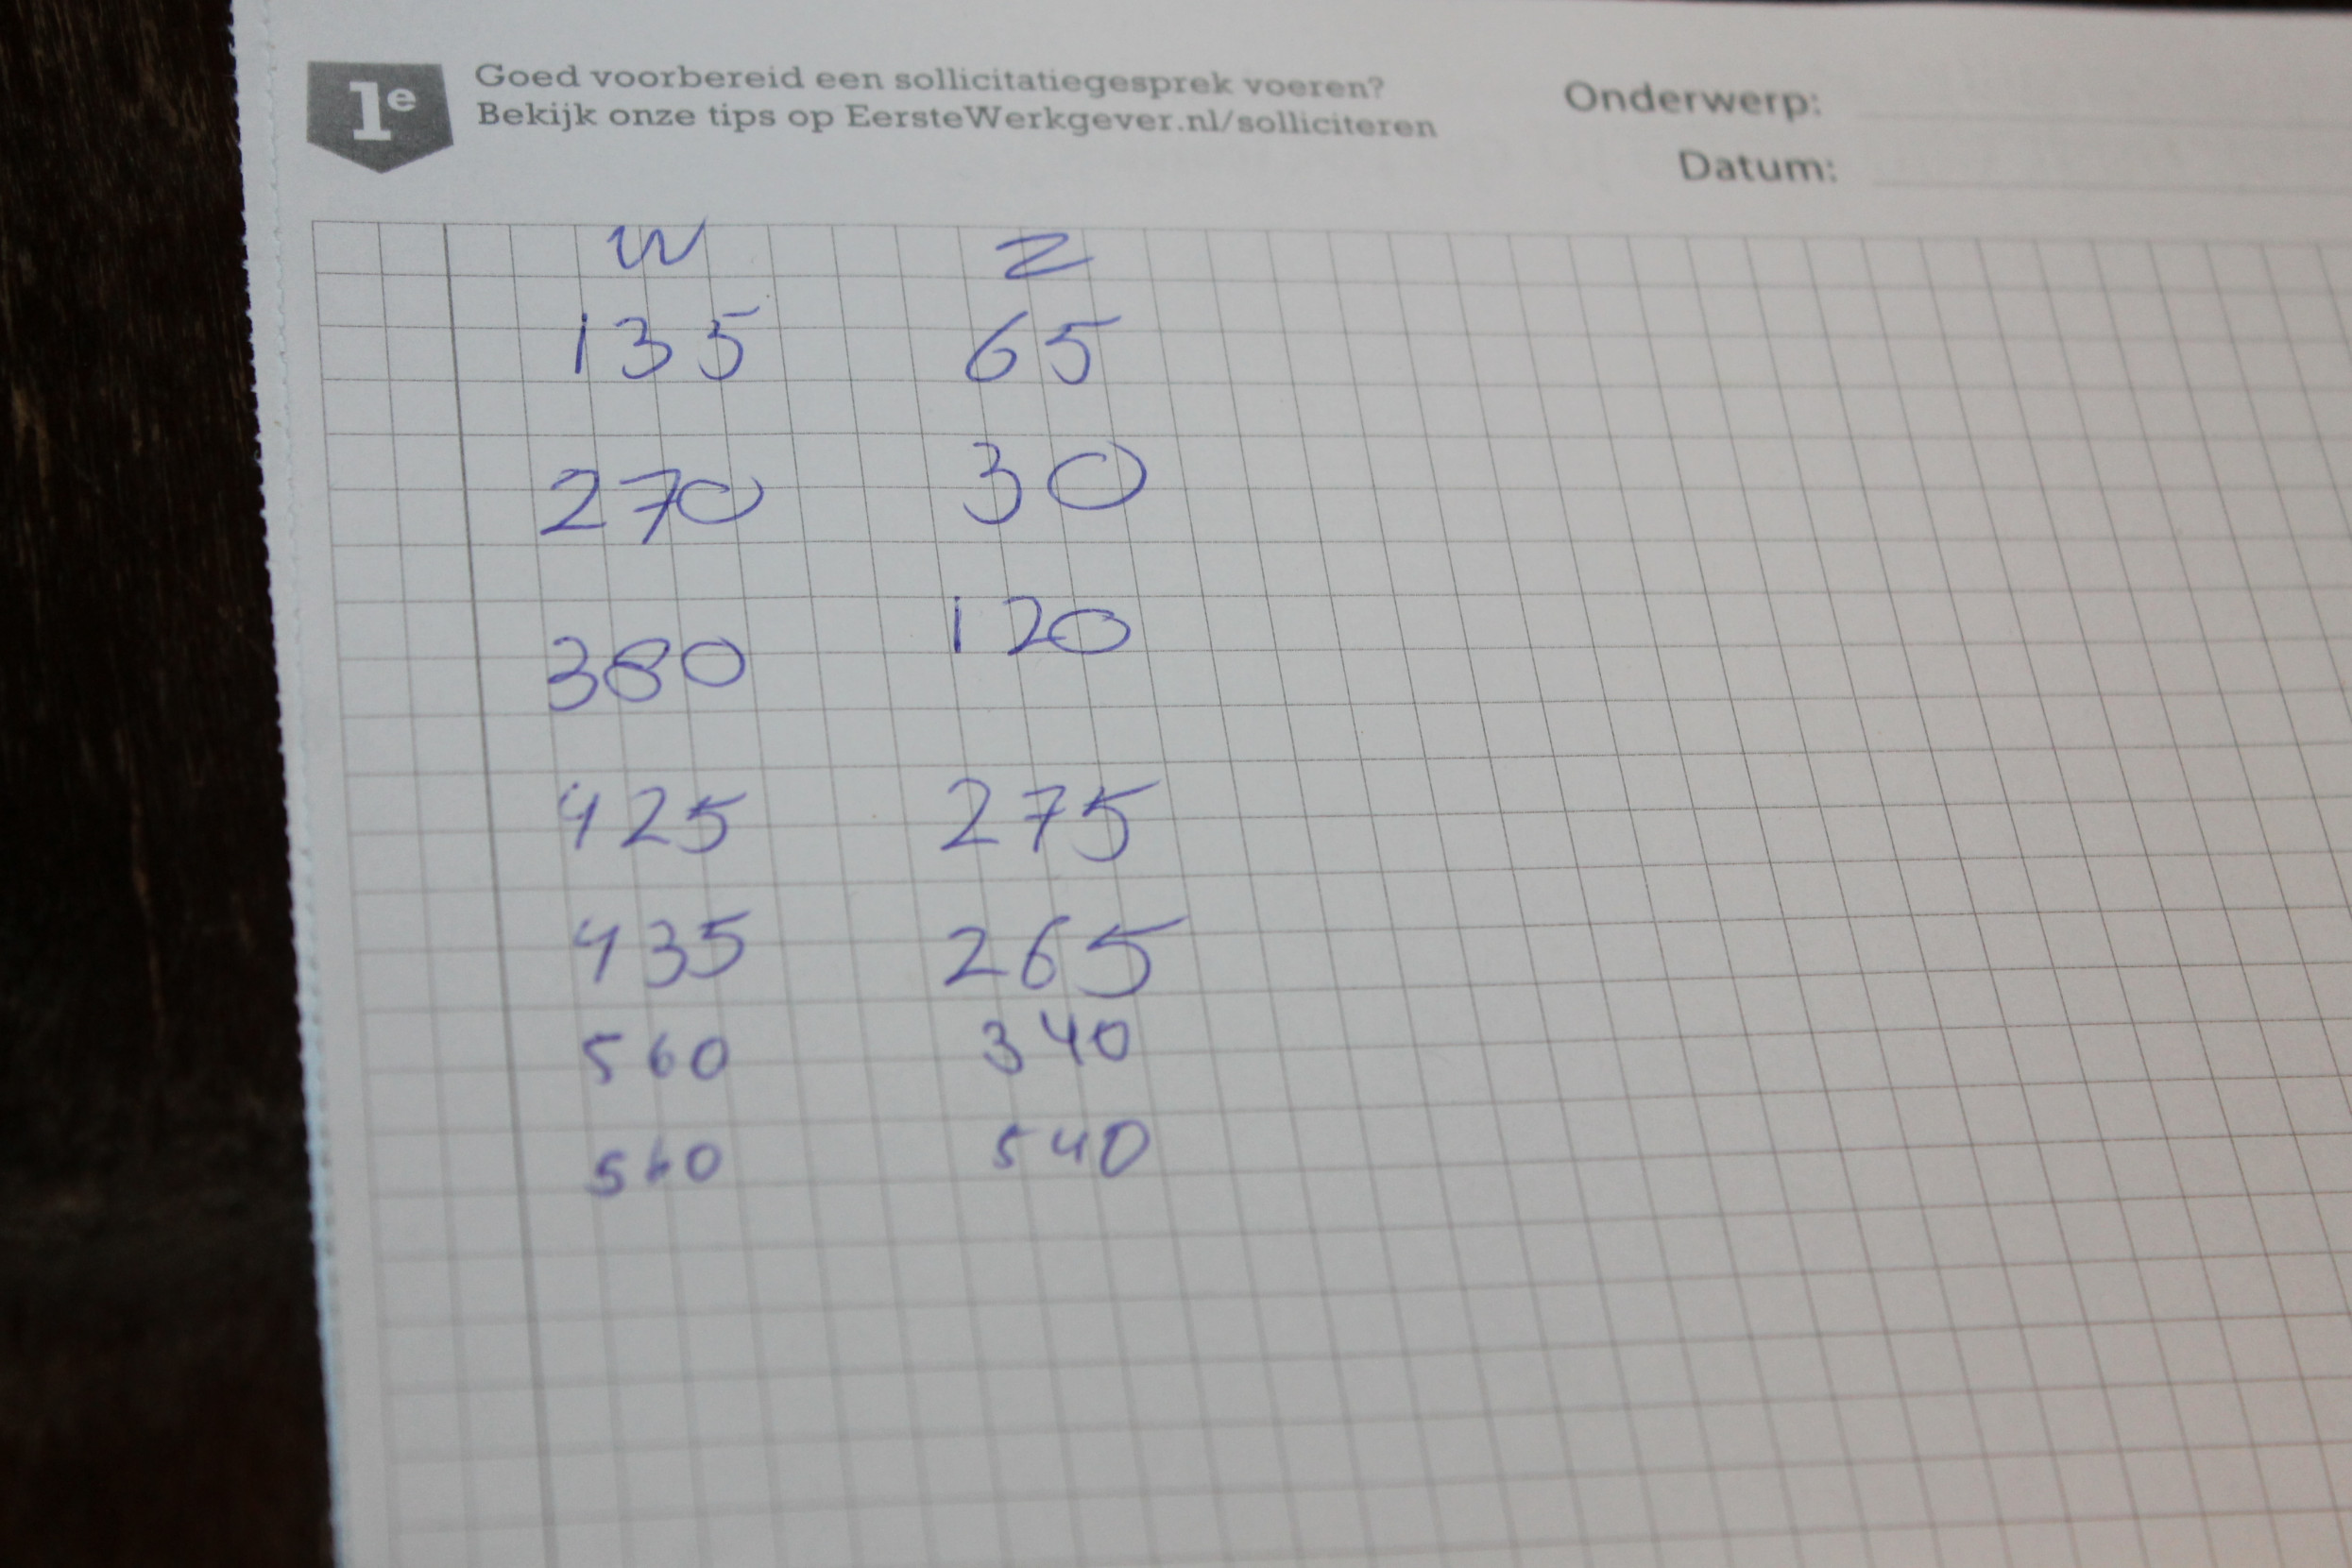 1e
Goed voorbereid een sollicitatiegesprek voeren?
Bekijk onze tips op EersteWerkgever.nl/solliciteren
Onderwerp:
Datum:
W Z
135 65
270 30
380 120
425 275
435 265
560 340
560 540